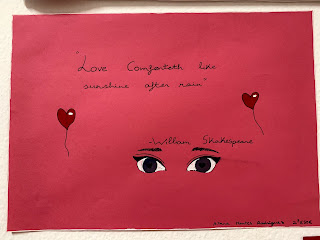 "Love Comforteth like
sunshine after rain"
-William Shakespeare